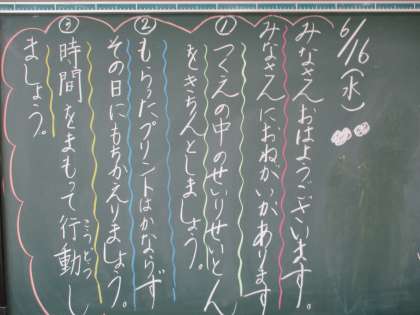 6/16(水)
みなさんおはようございます。
みなさんにおねがいがあります
①つくえの中のせいりせいとん
をきちんとしましょう。
②もらったプリントはかならず
その日にもちかえりましょう。
③時間をまもって行動し
こうどう
ましょう。